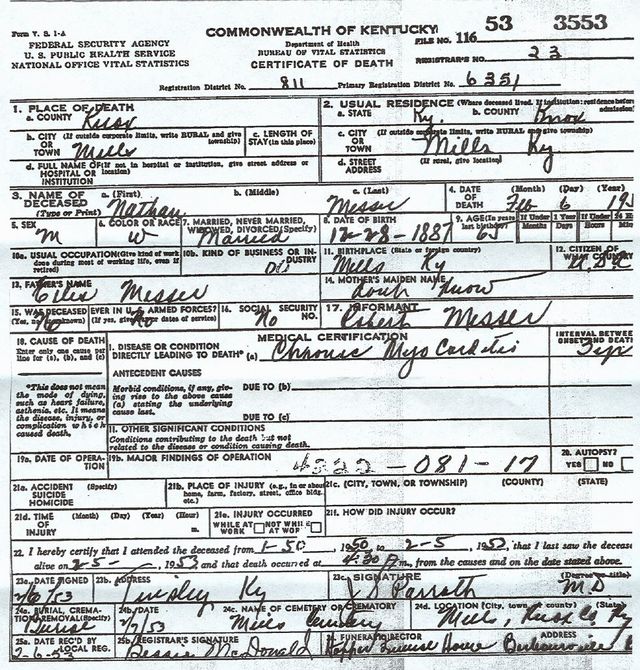 Form V. S. 1-A
FEDERAL SECURITY AGENCY
U. S. PUBLIC HEALTH SERVICE
NATIONAL OFFICE VITAL STATISTICS
COMMONWEALTH OF KENTUCKY
Department of Health
BUREAU OF VITAL STATISTICS
CERTIFICATE OF DEATH
53 3553
FILE NO. 116
REGISTRAR'S NO. 23
Registration District No. 811 Primary Registration District No. 6351
1. PLACE OF DEATH
a. COUNTY Knox
b. CITY (If outside corporate limits, write RURAL and give township)
OR TOWN Mills
c. LENGTH OF STAY (in this place)
d. FULL NAME OF (If not in hospital or institution, give street address or location)
HOSPITAL OR INSTITUTION
2. USUAL RESIDENCE (Where deceased lived. If institution: residence before admission)
a. STATE Ky. b. COUNTY Knox
c. CITY (If outside corporate limits, write RURAL and give township)
OR TOWN Mills Ky
d. STREET ADDRESS (If rural, give location)
3. NAME OF DECEASED (Type or Print)
a. (First) Nathan
b. (Middle)
c. (Last) Messer
4. DATE OF DEATH (Month) (Day) (Year)
Feb 6 195
5. SEX M
6. COLOR OR RACE W
7. MARRIED, NEVER MARRIED, WIDOWED, DIVORCED (Specify)
Married
8. DATE OF BIRTH
12-28-1887
9. AGE (In years last birthday) 65
If Under 1 Year Months Days
If Under 24 Hours Min
10a. USUAL OCCUPATION (Give kind of work done during most of working life, even if retired)
10b. KIND OF BUSINESS OR INDUSTRY
11. BIRTHPLACE (State or foreign country)
Mills Ky
12. CITIZEN OF WHAT COUNTRY
13. FATHER'S NAME
Messer
14. MOTHER'S MAIDEN NAME
15. WAS DECEASED EVER IN U. S. ARMED FORCES?
(Yes, no, unknown) (If yes, give war or dates of service)
No
16. SOCIAL SECURITY NO.
No
17. INFORMANT
Robert Messer
18. CAUSE OF DEATH
Enter only one cause per line for (a), (b), and (c)
*This does not mean the mode of dying, such as heart failure, asthenia, etc. It means the disease, injury, or complication which caused death.
MEDICAL CERTIFICATION
1. DISEASE OR CONDITION DIRECTLY LEADING TO DEATH* (a) Chronic Myo Carditis
INTERVAL BETWEEN ONSET AND DEATH
ANTECEDENT CAUSES
Morbid conditions, if any, giving rise to the above cause (a) stating the underlying cause last.
DUE TO (b)
DUE TO (c)
11. OTHER SIGNIFICANT CONDITIONS
Conditions contributing to the death but not related to the disease or condition causing death.
19a. DATE OF OPERATION
19b. MAJOR FINDINGS OF OPERATION
4222-081-17
20. AUTOPSY?
YES NO
21a. ACCIDENT SUICIDE HOMICIDE (Specify)
21b. PLACE OF INJURY (e.g., in or about home, farm, factory, street, office bldg. etc.)
21c. (CITY, TOWN, OR TOWNSHIP) (COUNTY) (STATE)
21d. TIME OF INJURY (Month) (Day) (Year) (Hour) m.
21e. INJURY OCCURRED
WHILE AT WORK NOT WHILE AT WORK
21f. HOW DID INJURY OCCUR?
22. I hereby certify that I attended the deceased from 1-50, 1950 to 2-5, 1953, that I last saw the deceased
alive on 2-5-, 1953 and that death occurred at 4:30 P m., from the causes and on the date stated above.
23a. DATE SIGNED
23b. ADDRESS
Tinsley Ky
23c. SIGNATURE (Degree or title)
J D Parrott M.D
24a. BURIAL, CREMATION, REMOVAL (Specify)
Burial
24b. DATE
2/7/53
24c. NAME OF CEMETERY OR CREMATORY
Mills Cemetery
24d. LOCATION (City, town, or county) (State)
Mills, Knox Co Ky
25a. DATE REC'D BY LOCAL REG.
2-6-53
25b. REGISTRAR'S SIGNATURE
Bessie McDonald
FUNERAL DIRECTOR
Hopper Funeral Home
ADDRESS
Barbourville